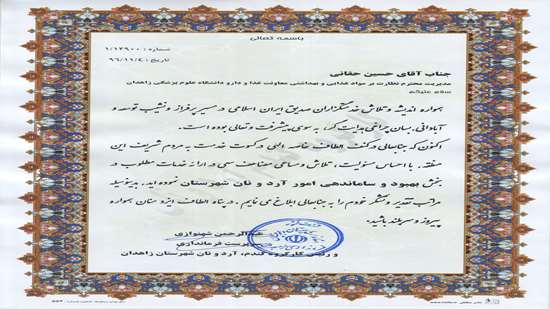 باسمه تعالی
شماره: ۱/۱۲۹۰۰
تاریخ: ۹۶/۱۱/۴
جناب آقای حسین حقانی
مدیریت محترم نظارت بر مواد غذایی و بهداشتی معاونت غذا و دارو دانشگاه علوم پزشکی زاهدان
سلام علیکم
همواره اندیشه و تلاش خدمتگزاران صدیق ایران اسلامی در مسیر پرفراز و نشیب توسعه و
آبادانی، بسان چراغی هدایت گر، به سوی پیشرفت و تعالی بوده است.
اکنون که جنابعالی در کنف الطاف خاصه الهی در کسوت خدمت به مردم شریف این
منطقه، با احساس مسئولیت، تلاش و مساعی مضاعف سعی در ارائه خدمات مطلوب در
بخش بهبود و ساماندهی امور آرد و نان شهرستان نموده اید، بدینوسیله
مراتب تقدیر و تشکر خودم را به جنابعالی ابلاغ می نمایم، در پناه الطاف ایزد منان همواره
پیروز و سربلند باشید.
عبدالرحمن شهنوازی
سرپرست فرمانداری
و رئیس کارگروه گندم، آرد و نان شهرستان زاهدان